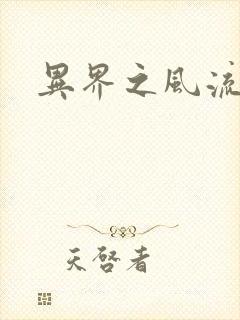 異界之風流
天啓者